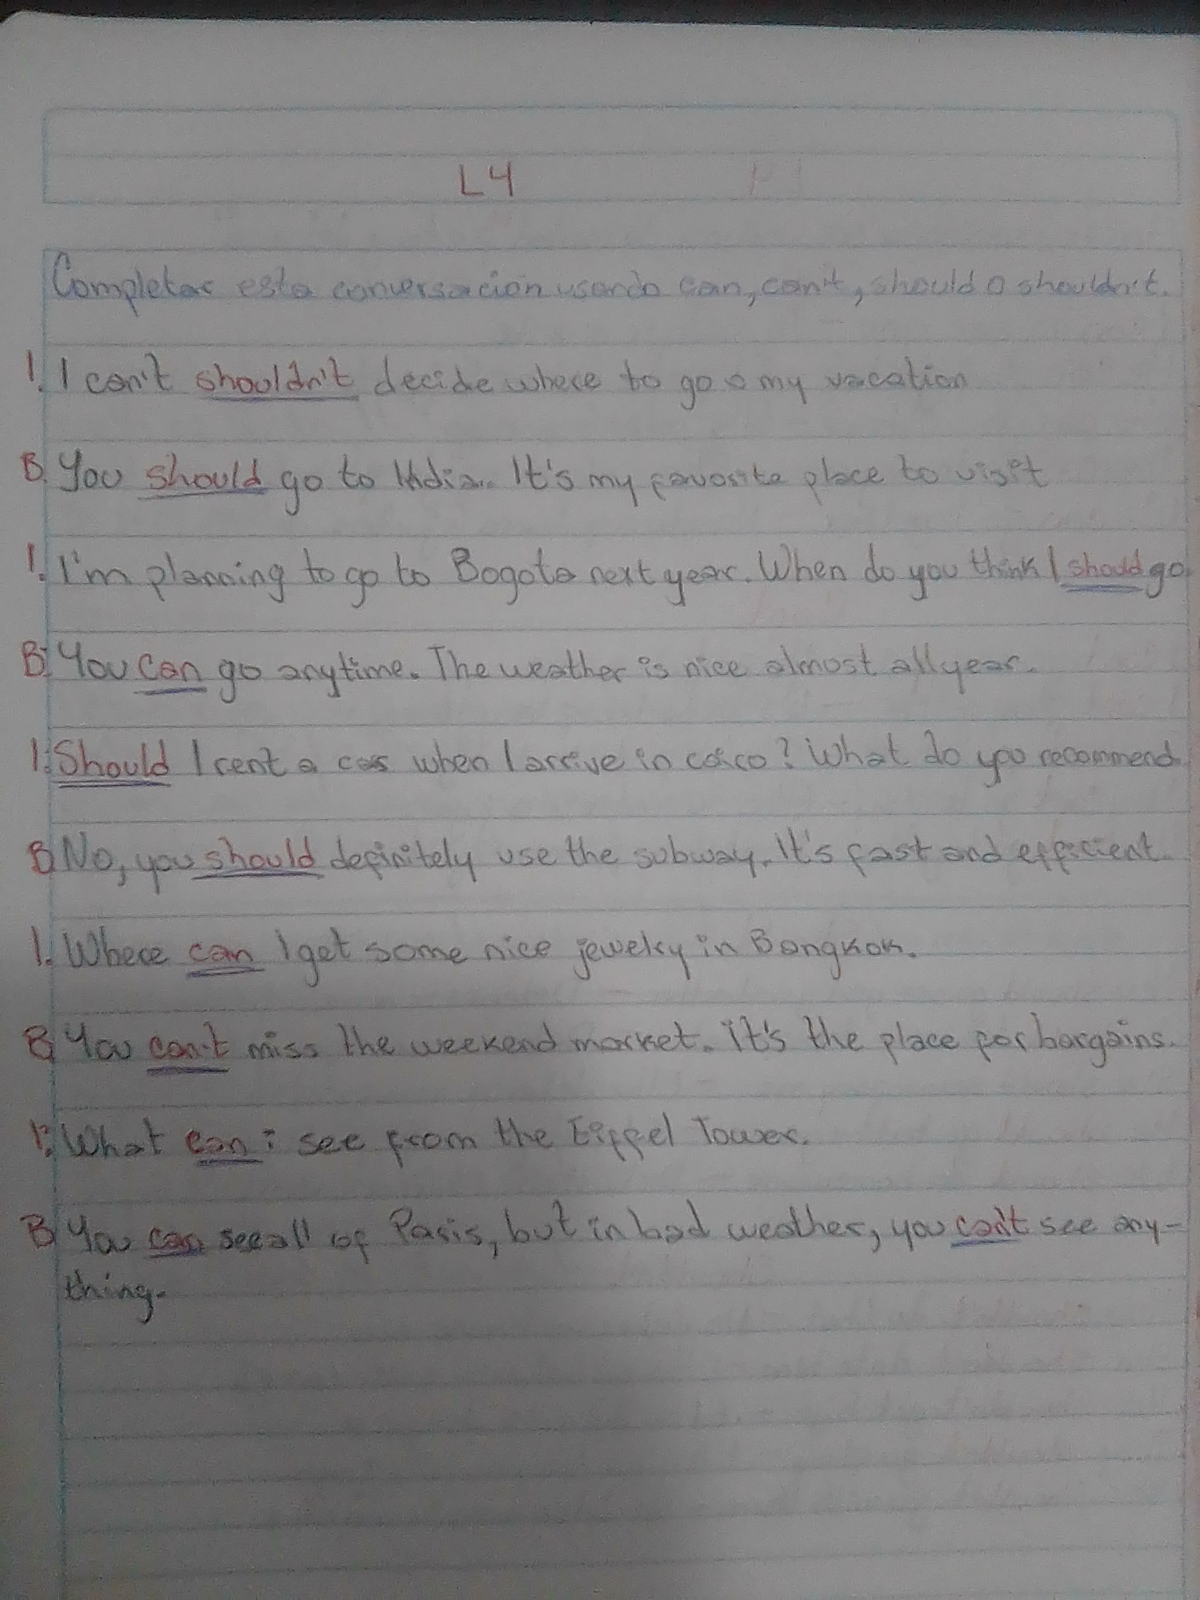 L4
Completar esta conversación usando can, can't, should o shouldn't.
1. I can't shouldn't decide where to go o my vacation
B. You should go to India. It's my favorite place to visit
1. I'm planning to go to Bogota next year. When do you think I should go.
B. You can go anytime. The weather is nice almost all year.
1. Should I rent a car when I arrive in coico? What do you recommend.
B No, you should definitely use the subway. It's fast and efficient.
1. Where can I get some nice jewelry in Bangkok.
B You can't miss the weekend market. It's the place for bargains.
1. What can i see from the Eiffel Tower.
B You can see all of Paris, but in bad weather, you can't see any-
thing.